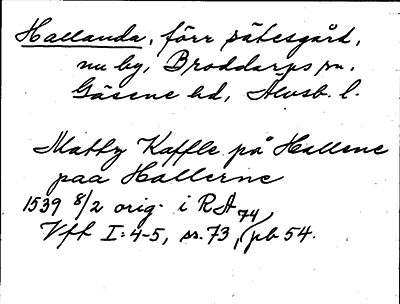 Hallanda, förr sätesgård,
nu by, Broddarps sn.
Gäsene hd, Älvsb. l.
Matty Kaffle på Hallene
paa Hallerne
1539 8/2 orig. i RA
Vfh I: 4-5, ss. 73, 74, pb 54.